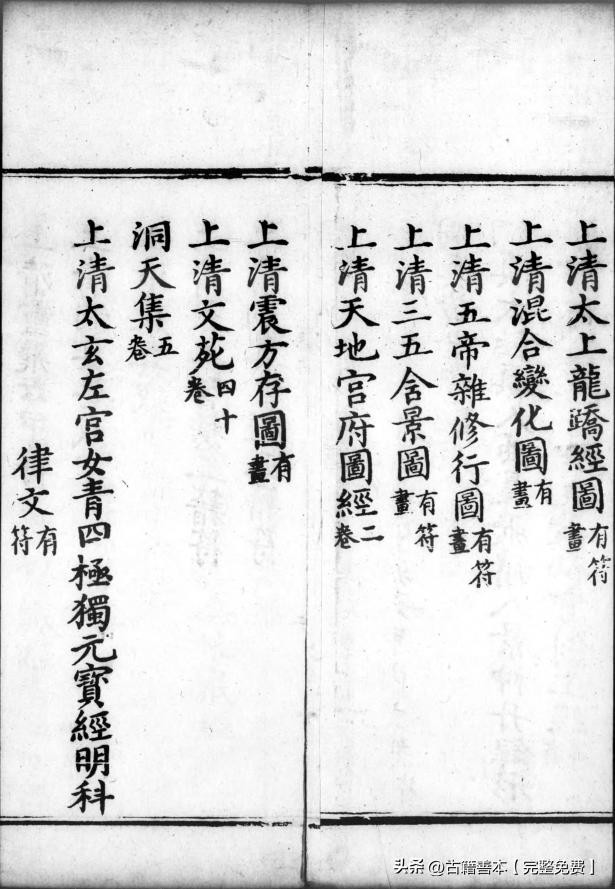 上清太上龍蹻經圖有符畫
上清混合變化圖有畫
上清五帝雜修行圖有符畫
上清三五含景圖有符畫
上清天地宮府圖經二卷
上清震方存圖有畫
上清文苑四十卷
洞天集五卷
上清太玄左官女青四極獨元寶經明科
律文有符
头条 @古籍善本【完整免费】